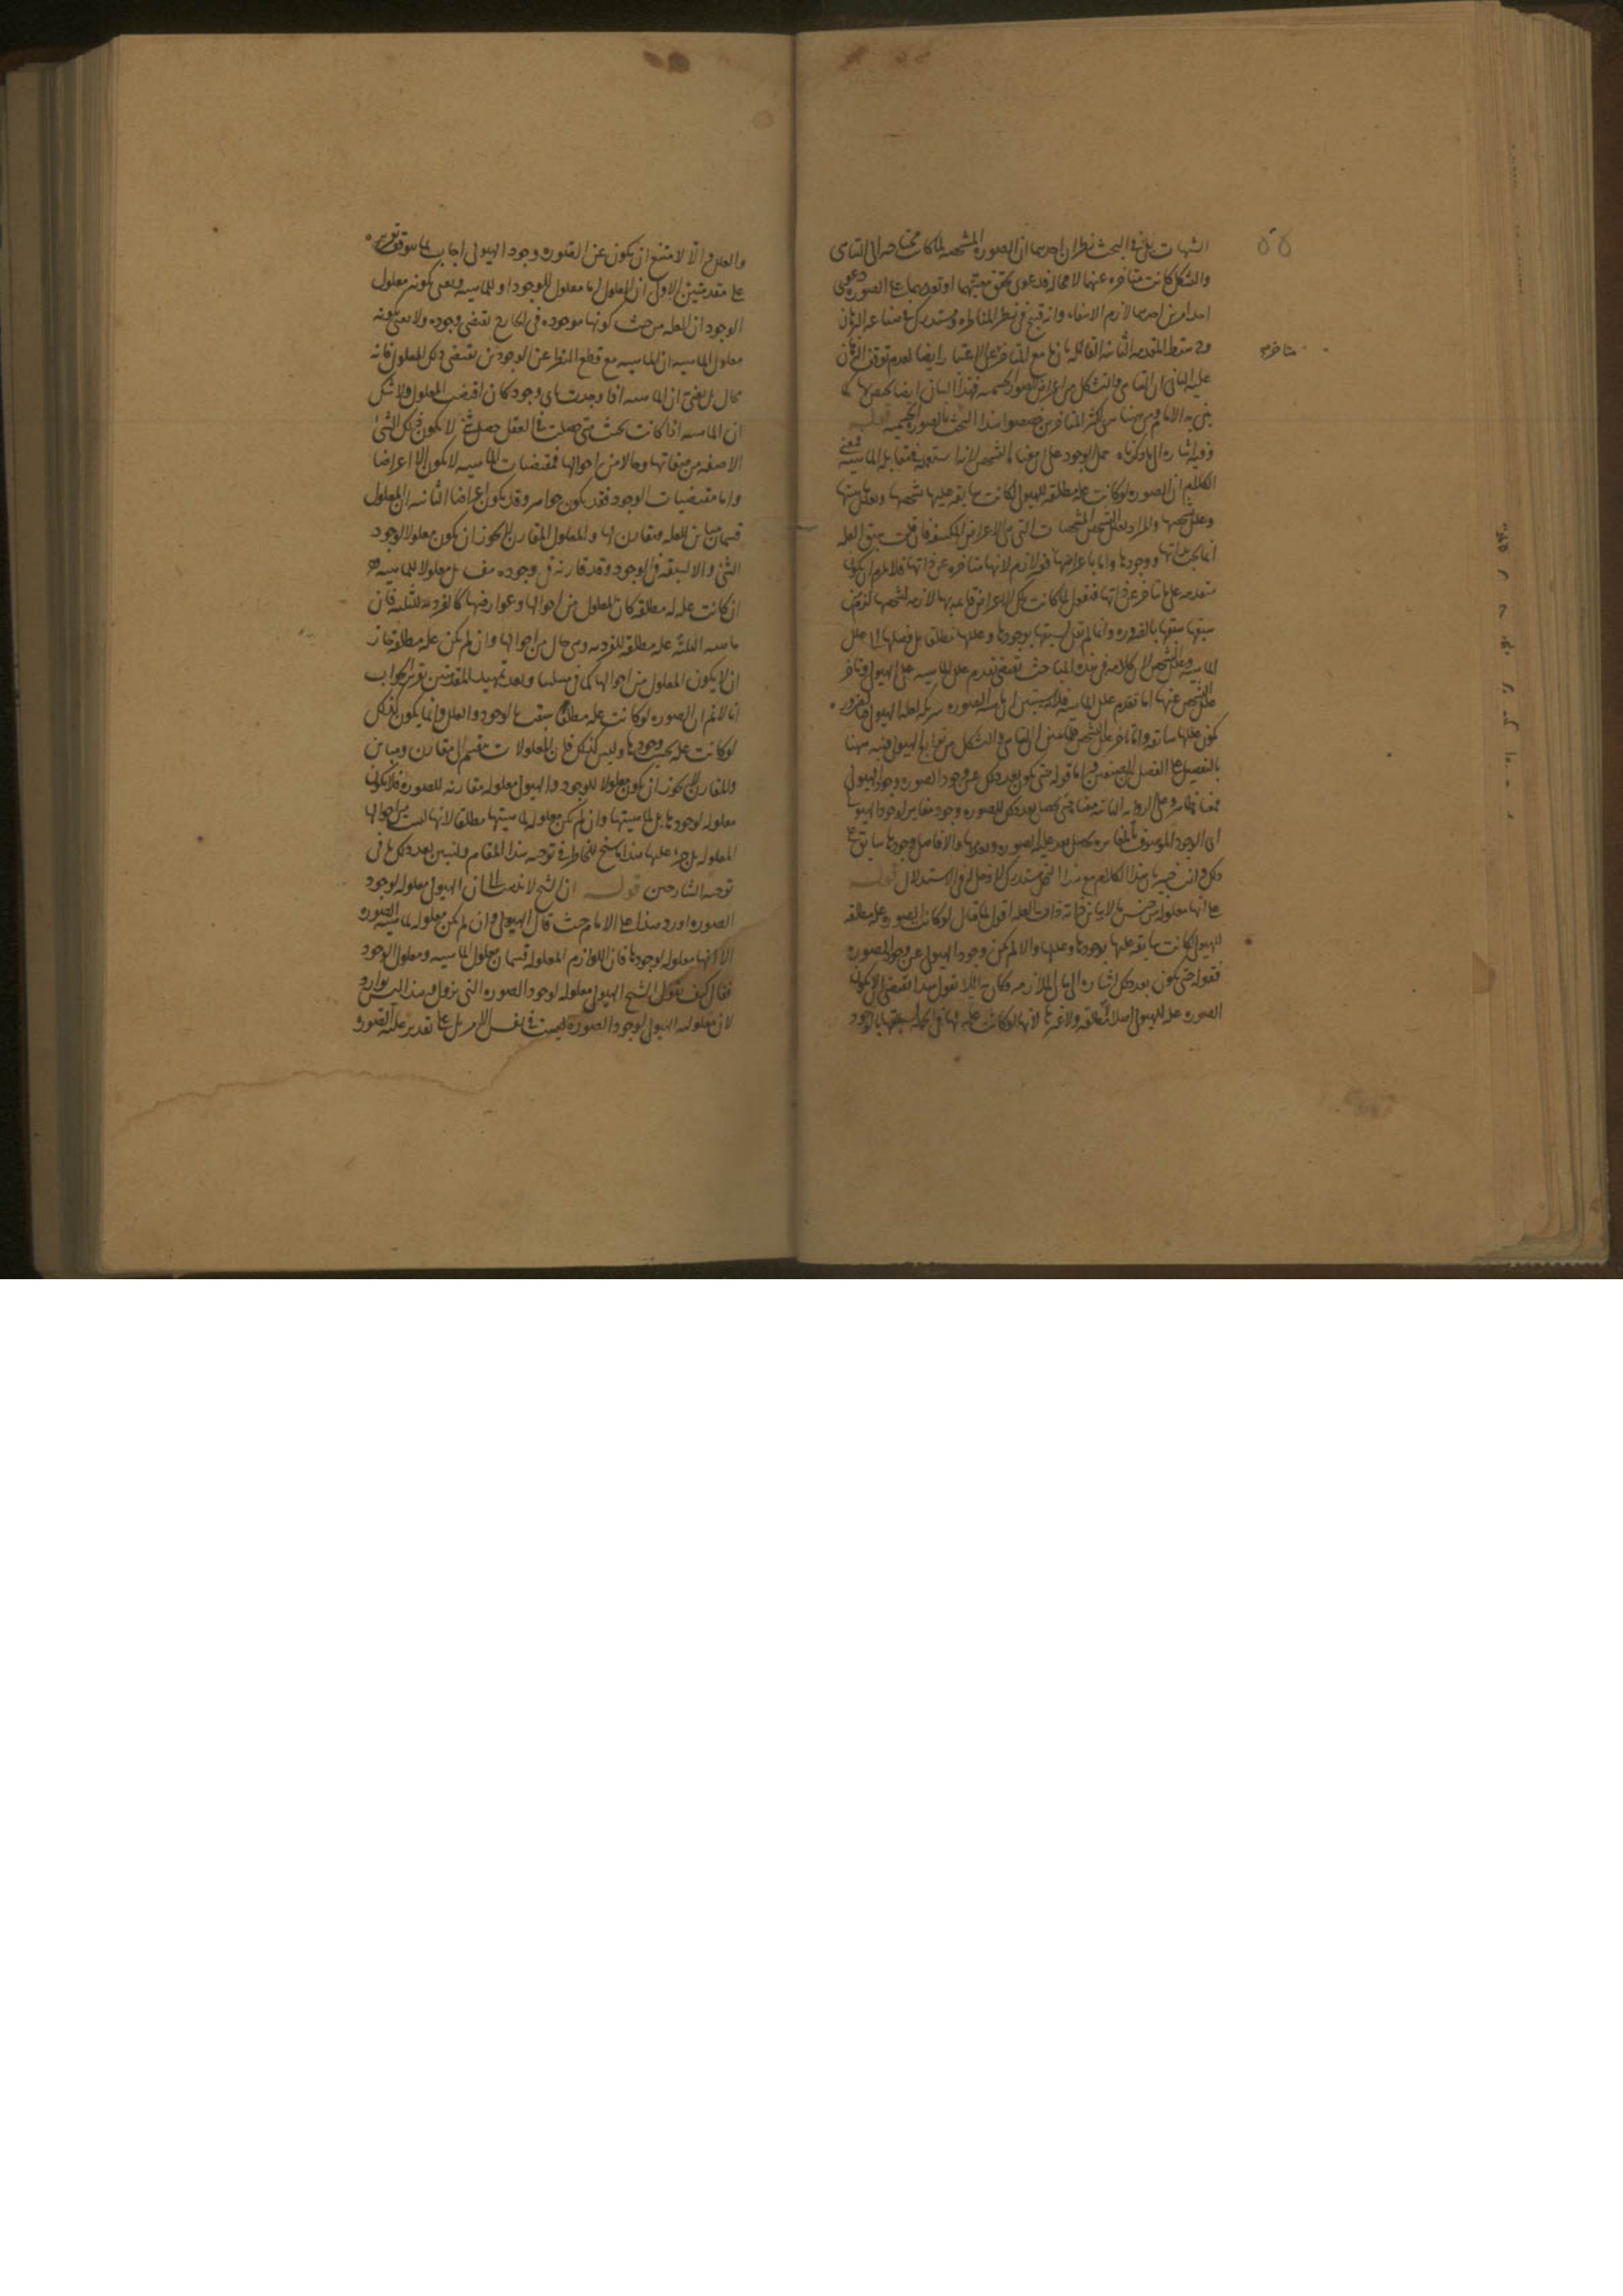 الشبهات بل في البحث نظران احدهما ان الصورة المشخصة لما كانت محتاجة الى التناهى
والشكل كانت متاخرة عنهما لا محالة فدعوى تحقق معيتهما او تقدمهما على الصورة دعوى
احد امرين احدهما لازم الانتفاء وانه قبيح في نظر المناظرة ومستدرك في صناعة البرهان
وح سقط المقدمة الثانية القائلة بان ما مع المتاخر
عليه الثانى ان التناهى والتشكل من اعراض الصورة الجسمية فهذا البيان ايضا يختص بها كما
الامام ومن هنا اكثر المتاخرين خصصوا هذا البحث بالصورة الجسمية قوله
وفيه اشارة الى ما ذكرناه حمل الوجود على معنى التشخص
الكلام ان الصورة لو كانت علة مطلقة للهيولى لكانت سابقة عليها بتشخصها وبعلل ماهيتها
وعلل تشخصها والمراد بعلل التشخص المشخصات التى هى الاعراض المكتنفة فان قلت سبق العلة
انما يجب بذاتها ووجودها واما باعراضها فغير لازم لانها متاخرة عن ذاتها فلا يلزم ان يكون
متقدمة على ما تاخر عن ذاتها فنقول لما كانت تلك الاعراض قائمة بها لازمة لتشخصها لزم من
سبقها سبقها بالضرورة وانما لم يقل بسبقها بوجودها وعللها مطلقا بل فصلها الى علل
الماهية وعلل التشخص لان كلامه في هذه المباحث يقتضى تقدم علل الماهية على الهيولى وتاخر
علل التشخص عنها اما تقدم علل الماهية فلانه سيتبين ان ماهية الصورة شريكة لعلة الهيولى فبالضرورة
يكون عللها سابقة واما تاخر علل التشخص فلما تبين ان التناهى والتشكل من توابع الهيولى فنبه ههنا
بالتفصيل على الفصل بين الصنفين واما قوله حتى يكون بعد ذلك عن وجود الصورة وجود الهيولى
فمعناه ظاهر وعلى الرواية الثانية معناه حتى يحصل بعد ذلك للصورة وجود مغاير لوجود الهيولى
اى الوجود الموصوف بالمغايرة يحصل بعد علية الصورة
ذلك وانت خبير بان هذا الكلام مع هذا التمحل مستدرك لا دخل له في الاستدلال قوله
على انها معلولة من جنس ما لا يباين ذاته ذات العلة اقول لما قال لو كانت الصورة علة مطلقة
للهيولى لكانت سابقة عليها بوجودها وعللها والا لم يكن وجود الهيولى عن وجود الصورة
فقوله حتى يكون بعد ذلك اشارة الى بيان الملازمة وكان قائلا يقول هذا يقتضى ان لا يكون
الصورة علة للهيولى اصلا لا مطلقة ولا غيرها لانها لو كانت علة لها في الجملة سبقتها بالوجود
متاخر
والعلل والا لامتنع ان يكون عن الصورة وجود الهيولى اجاب بما يتوقف تقريره
على مقدمتين الاولى ان المعلول اما معلول للوجود او للماهية ونعنى بكونه معلول
الوجود ان العلة من حيث كونها موجودة في الخارج تقتضى وجوده ولا نعنى بكونه
معلول الماهية ان الماهية مع قطع النظر عن الوجودين تقتضى ذلك المعلول فانه
محال بل نعنى ان الماهية اذا وجدت باى وجود كان اقتضت المعلول ولا شك
ان الماهية اذا كانت بحيث متى حصلت في العقل حصل شئ لا يكون ذلك الشئ
الا صفة من صفاتها وحالا من احوالها فمقتضيات الماهية لا يكون الا اعراضا
واما مقتضيات الوجود فقد يكون جواهر وقد يكون اعراضا الثانية ان المعلول
قسمان مباين للعلة ومقارن لها والمعلول المقارن لا يجوز ان يكون معلولا لوجود
الشئ والا لسبقه في الوجود وقد قارنه في وجوده هف بل معلولا للماهية وهى
ان كانت علة له مطلقة كان المعلول من احوالها وعوارضها كالفردية للثلثة فان
ماهية الثلثة علة مطلقة للفردية وهى حال من احوالها وان لم يكن علة مطلقة جاز
ان لا يكون المعلول من احوالها كما في مسئلتنا وبعد تمهيد المقدمتين تقرير الجواب
انا لا نم ان الصورة لو كانت علة مطلقا سبقت بالوجود والعلل وانما يكون كذلك
لو كانت علة بحسب وجودها وليس كذلك فان المعلولات تنقسم الى مقارن ومباين
والمقارن لا يجوز ان يكون معلولا للوجود والهيولى معلولة مقارنة للصورة فلا يكون
معلولة لوجودها بل لماهيتها وان لم يكن معلولة لماهيتها مطلقا لانها ليست من احوالها
المعلولة بل جزء علتها هذا ما سنح للخاطر في توجيه هذا المقام ولنبين بعد ذلك ما في
توجيه الشارحين قوله ان الشيخ لا يذهب الى ان الهيولى معلولة لوجود
الصورة اورد هذا على الامام حيث قال الهيولى وان لم يكن معلولة لماهية الصورة
الا انها معلولة لوجودها فان اللوازم المعلولة قسمان معلول الماهية ومعلول الوجود
فقال كيف يقول الشيخ الهيولى معلولة لوجود الصورة التى تزول وهذا ليس بوارد
لان معلولية الهيولى لوجود الصورة ليست في نفس الامر بل على تقدير علية الصورة